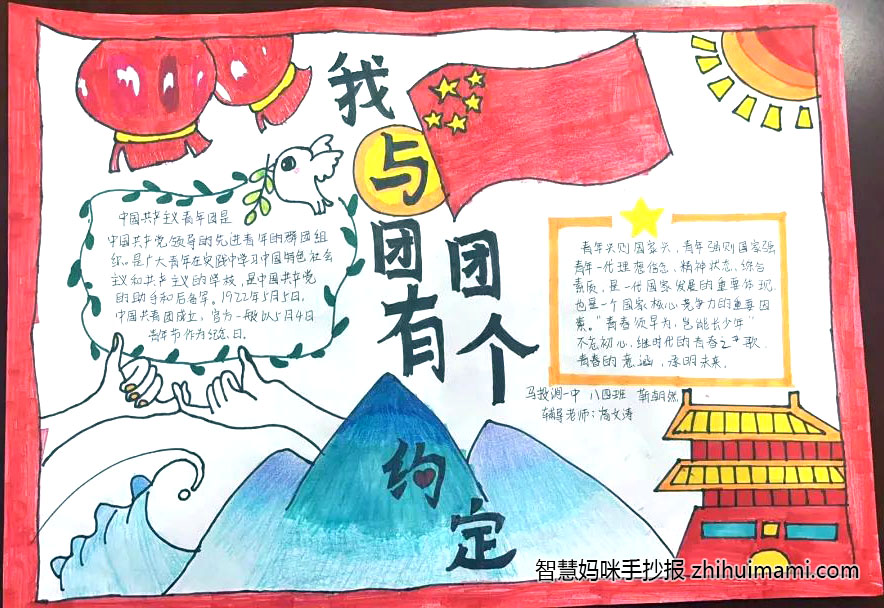 我
与
团 团
有 个
约
定
中国共产主义青年团是
中国共产党领导的先进青年的群团组
织。是广大青年在实践中学习中国特色社会
主义和共产主义的学校,是中国共产党
的助手和后备军。1922年5月5日,
中国共青团成立,官方一般以5月4日
青年节作为纪念日。
青年兴则国家兴,青年强则国家强
青年一代理想信念、精神状态、综合
素质,是一代国家发展的重要体现
也是一个国家核心竞争力的重要因
素。"青春须早为,岂能长少年"
不忘初心,继时代的青春之歌
青春的意涵,承明未来.
一中 八四班
辅导老师:
智慧妈咪手抄报 zhihuimami.com